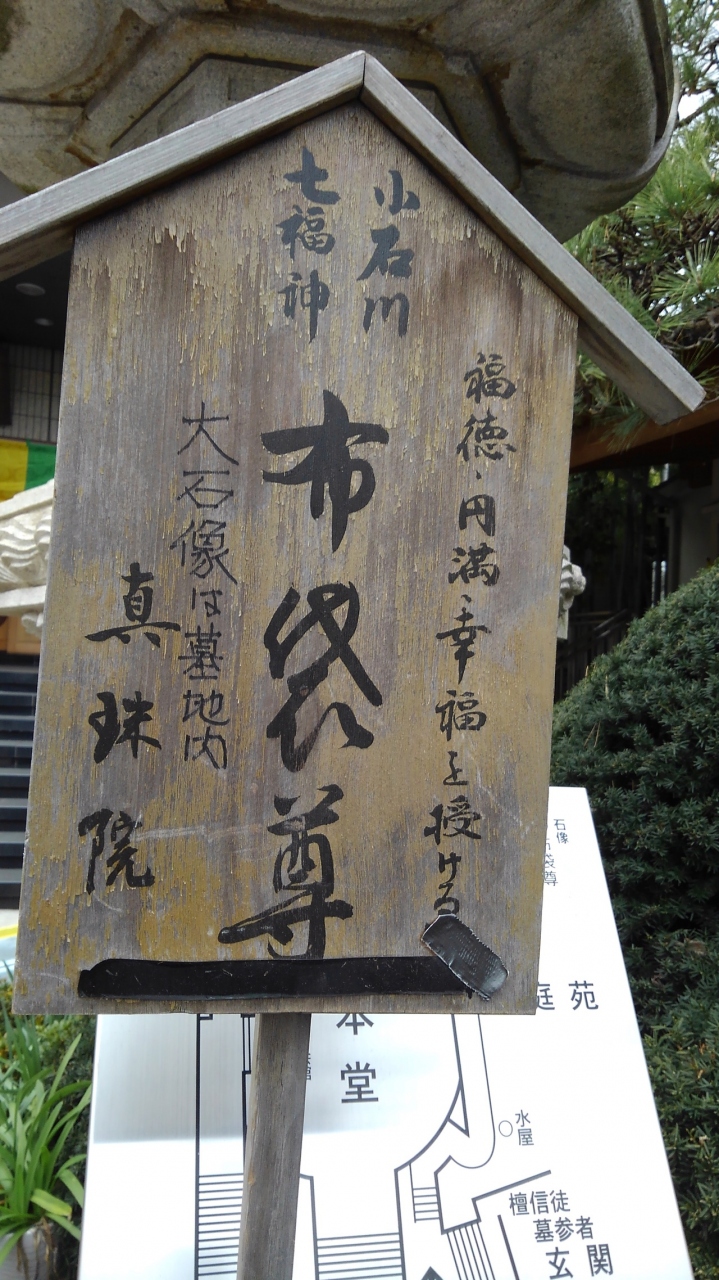 小石川
七福神
福徳、円満、幸福を授ける
布袋尊
大石像は墓地内
真珠院
石像
布袋尊
庭苑
本堂
水屋
檀信徒
墓参者
玄関